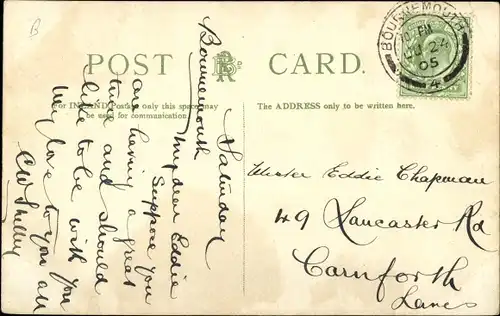 B
POST CARD.
For INLAND Postage only this space may
be used for communication.
The ADDRESS only to be written here.
BOURNEMOUTH
PM
24
05
4
Saturday
Bournemouth
My dear Eddie
Suppose you
are having a great
time and should
like to be with you
My love to you all
C W Shelley
Master Eddie Chapman
49 Lancaster Rd
Carnforth
Lancs